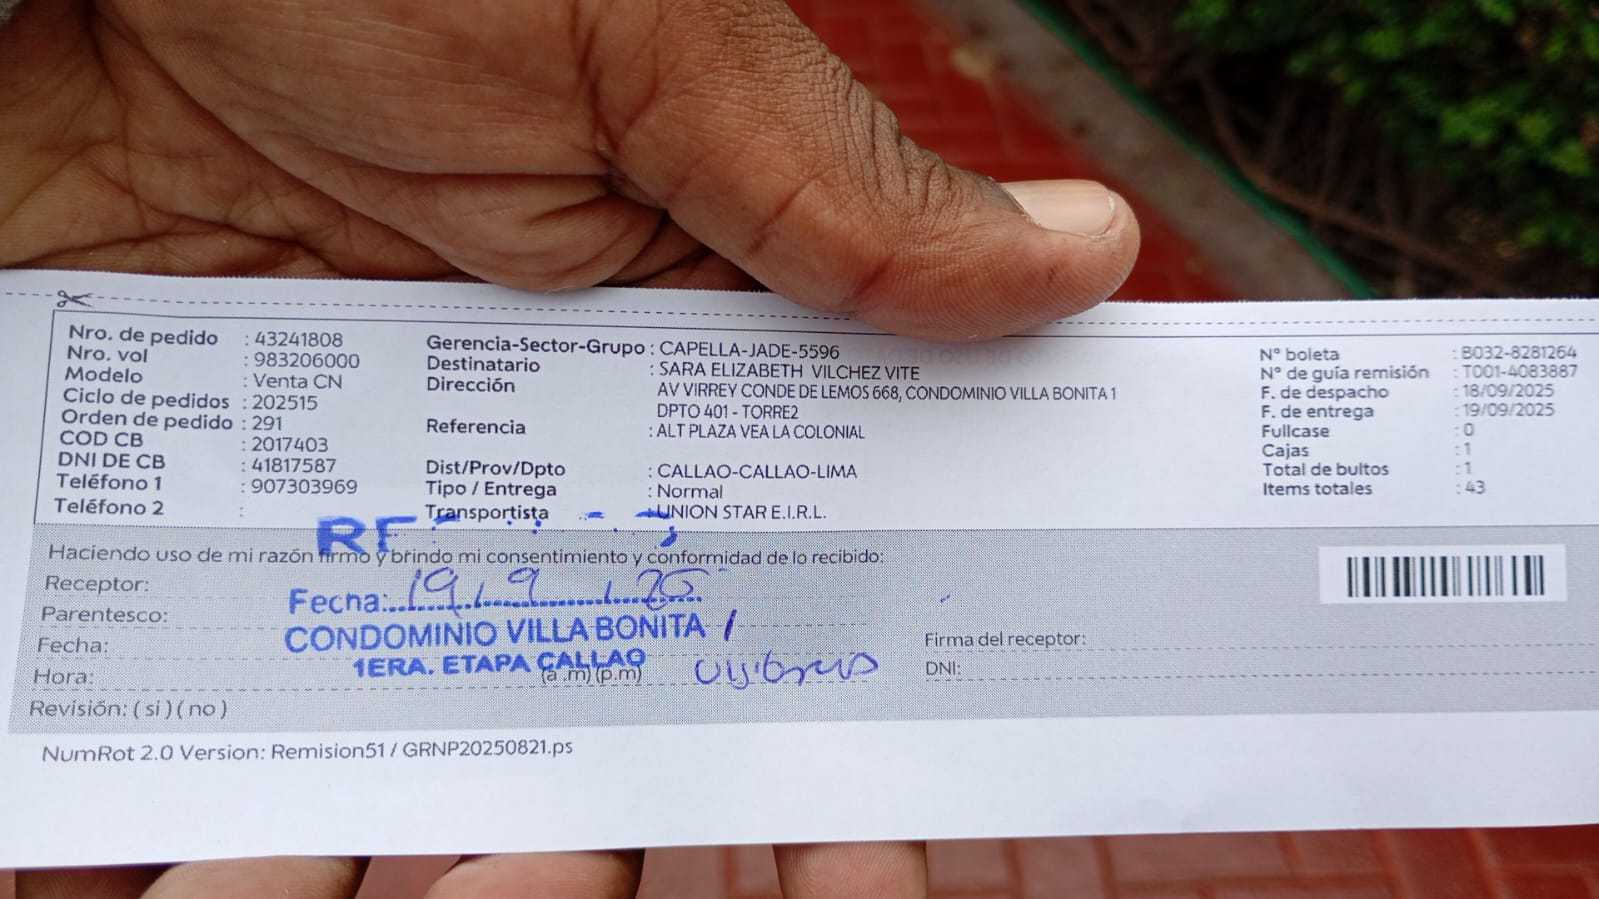 Nro. de pedido : 43241808
Nro. vol : 983206000
Modelo : Venta CN
Ciclo de pedidos : 202515
Orden de pedido : 291
COD CB : 2017403
DNI DE CB : 41817587
Teléfono 1 : 907303969
Teléfono 2 :
Gerencia-Sector-Grupo : CAPELLA-JADE-5596
Destinatario : SARA ELIZABETH VILCHEZ VITE
Dirección AV VIRREY CONDE DE LEMOS 668, CONDOMINIO VILLA BONITA 1
DPTO 401 - TORRE2
Referencia : ALT PLAZA VEA LA COLONIAL
Dist/Prov/Dpto : CALLAO-CALLAO-LIMA
Tipo / Entrega : Normal
Transportista : UNION STAR E.I.R.L.
N° boleta : B032-8281264
N° de guía remisión : T001-4083887
F. de despacho : 18/09/2025
F. de entrega : 19/09/2025
Fullcase : 0
Cajas : 1
Total de bultos : 1
Items totales : 43
Haciendo uso de mi razón firmo y brindo mi consentimiento y conformidad de lo recibido:
Receptor:
Parentesco:
Fecha:
Hora: (a .m) (p.m)
Revisión: ( si ) ( no )
Fecha: 19 9 25
CONDOMINIO VILLA BONITA 1
1ERA. ETAPA CALLAO
Firma del receptor:
DNI:
NumRot 2.0 Version: Remision51 / GRNP20250821.ps